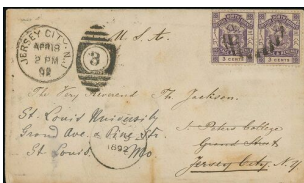 JERSEY CITY, N.J.
2 PM
92
3
U.S.A.
3 CENTS
3 CENTS
The Very Reverend
Jackson.
St. Louis University
Grand Ave. &
St. Louis
Mo
1892
St. Peters College
Grand Street
Jersey City. N.J